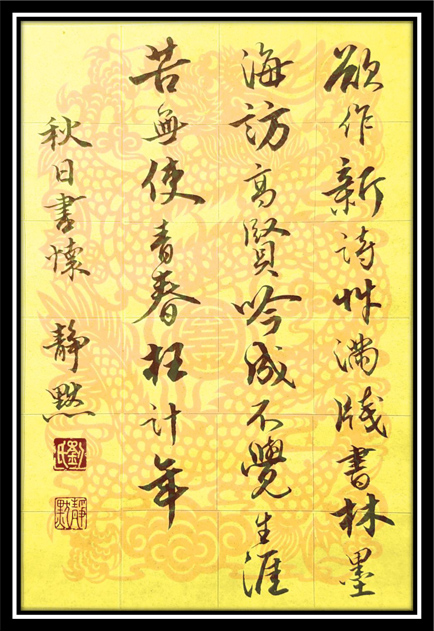 欲作新詩性滿牋書林墨
海訪高賢吟成不覺生涯
苦無使青春枉計年
秋日書懷 靜默
劉氏
靜默